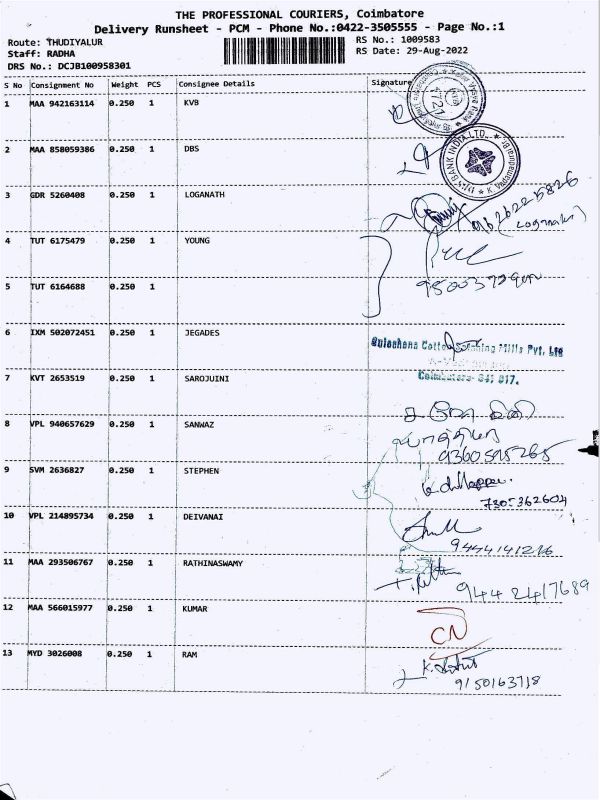 THE PROFESSIONAL COURIERS, Coimbatore
Delivery Runsheet - PCM - Phone No.:0422-3505555 - Page No.:1
Route: THUDIYALUR
Staff: RADHA
DRS No.: DCJB100958301
RS No.: 1009583
RS Date: 29-Aug-2022
S No Consignment No Weight PCS Consignee Details Signature
1 MAA 942163114 0.250 1 KVB
2 MAA 858059386 0.250 1 DBS
DBS BANK INDIA LTD.
3 GDR 5260408 0.250 1 LOGANATH
4 TUT 6175479 0.250 1 YOUNG
5 TUT 6164688 0.250 1
6 IXM 502072451 0.250 1 JEGADES
Mills Pvt. Ltd
Coimbatore- 641 017.
7 KVT 2653519 0.250 1 SAROJUINI
8 VPL 940657629 0.250 1 SANWAZ
9360595265
9 SVM 2636827 0.250 1 STEPHEN
7305362604
10 VPL 214895734 0.250 1 DEIVANAI
9444141216
11 MAA 293506767 0.250 1 RATHINASWAMY
9442417689
12 MAA 566015977 0.250 1 KUMAR
CN
13 MYD 3026008 0.250 1 RAM
9150163718